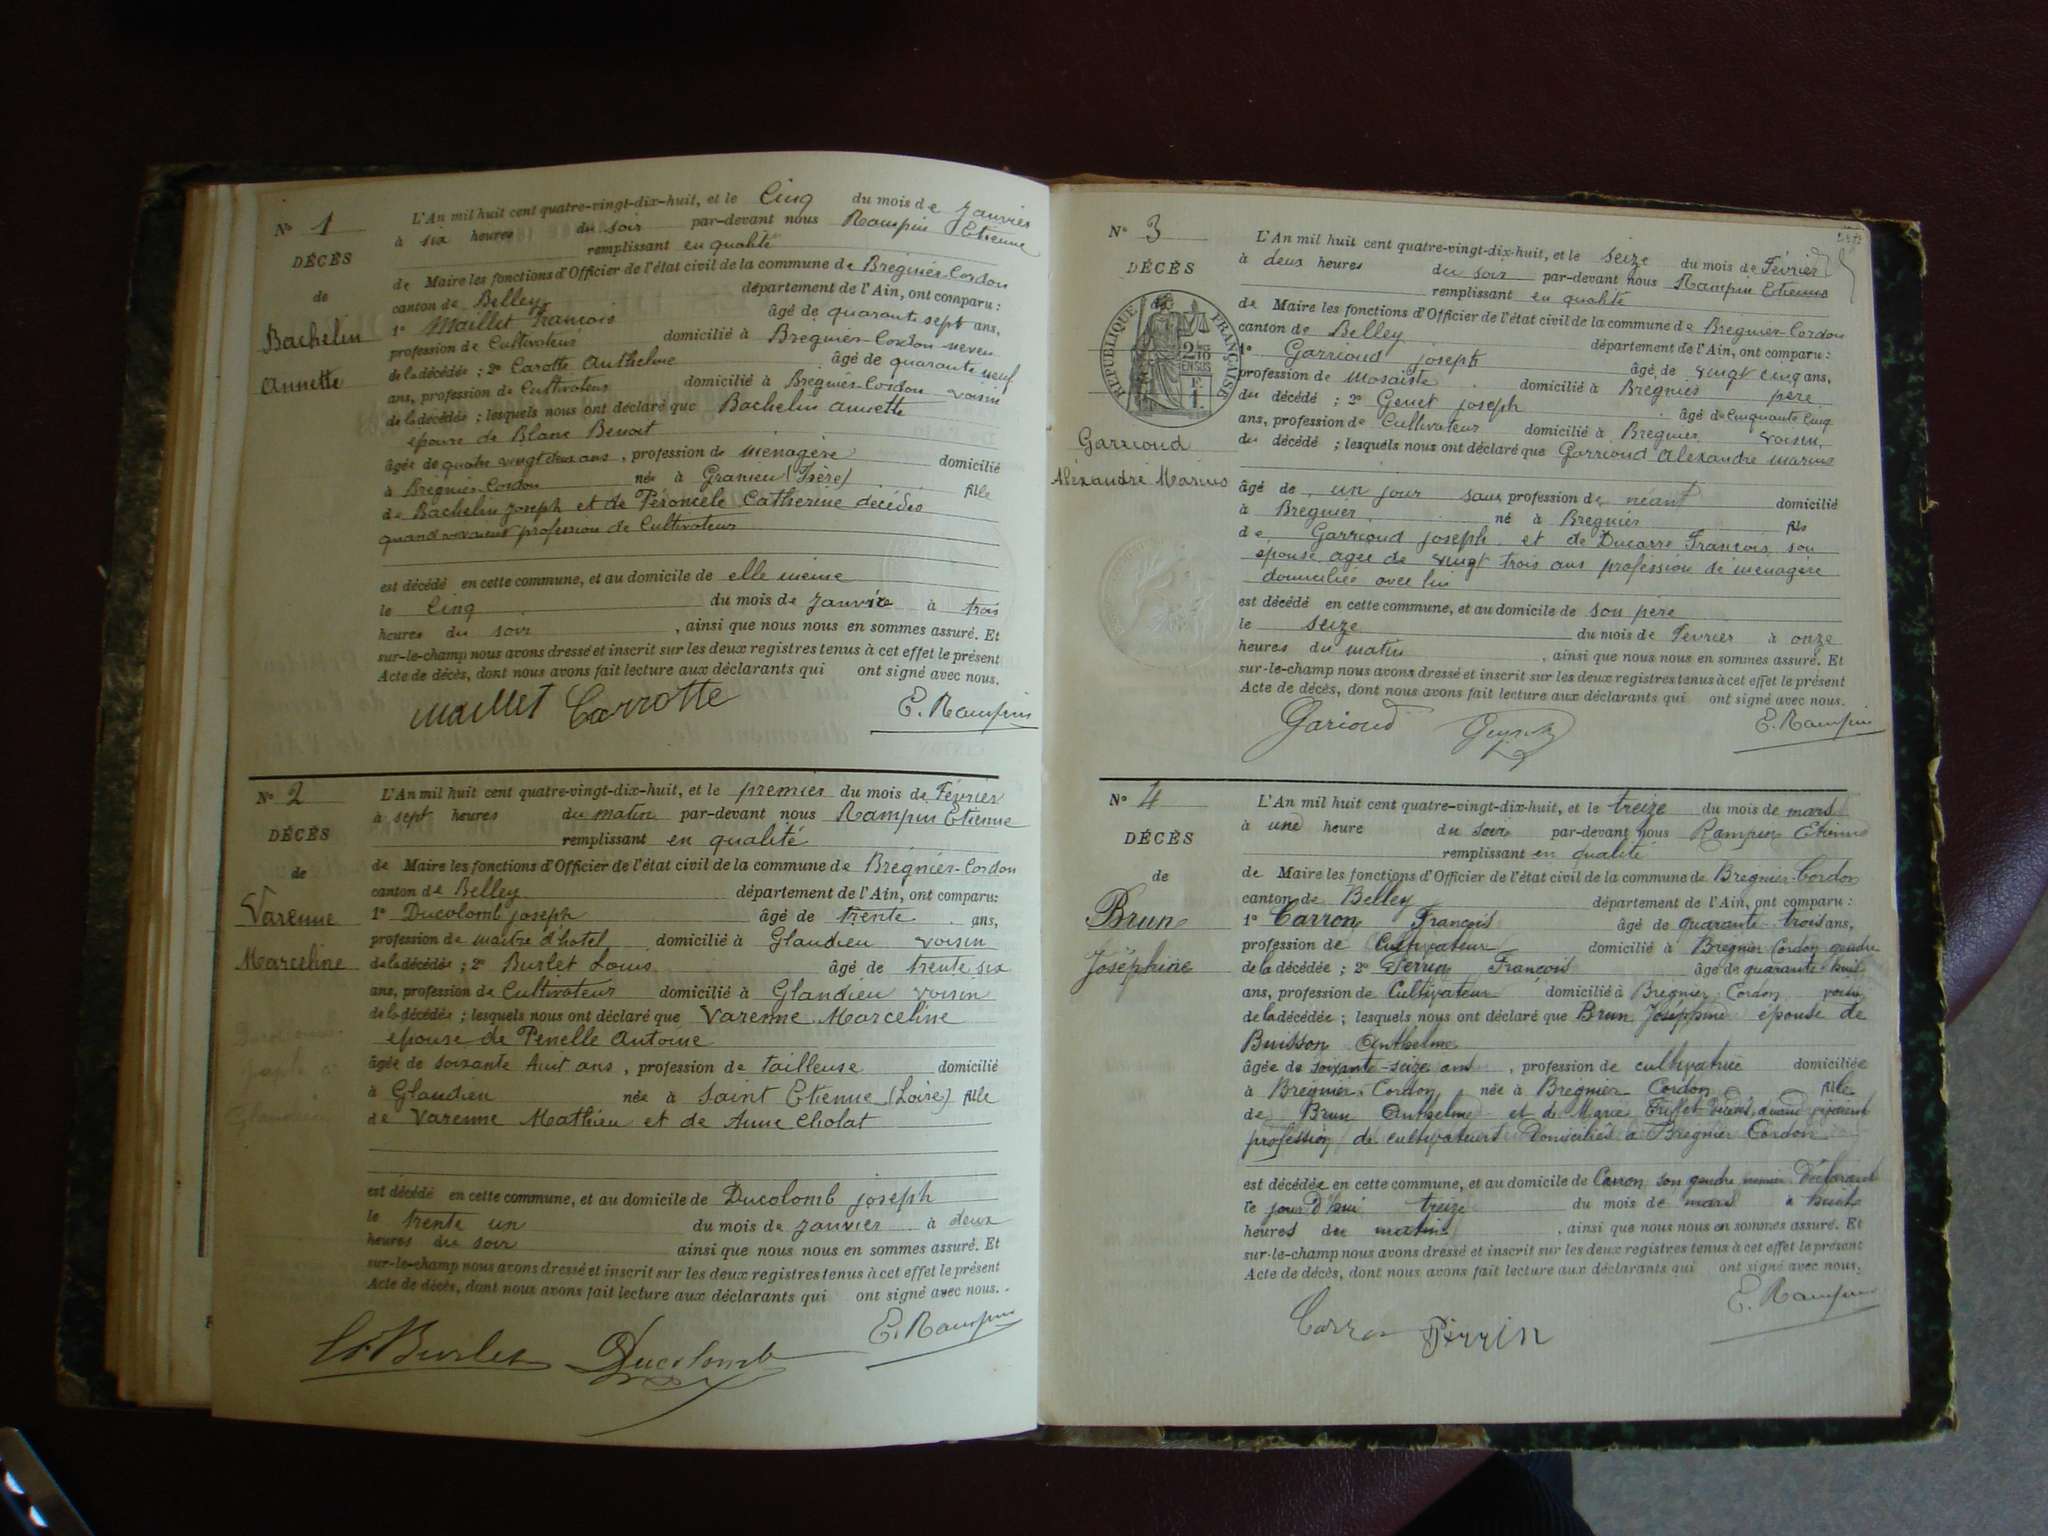 N° 1
DÉCÈS
de
Bachelin
Annette
L'An mil huit cent quatre-vingt-dix-huit, et le Cinq du mois de Janvier
à six heures du soir par-devant nous Rampin Etienne
remplissant en qualité
de Maire les fonctions d'Officier de l'état civil de la commune de Brégnier-Cordon
canton de Belley département de l'Ain, ont comparu :
1° Maillet François âgé de quarante sept ans,
profession de Cultivateur domicilié à Brégnier-Cordon neveu
de la décédée ; 2° Carotte Anthelme âgé de quarante neuf
ans, profession de Cultivateur domicilié à Brégnier-Cordon voisin
de la décédée ; lesquels nous ont déclaré que Bachelin annette
épouse de Blanc Benoit
âgée de quatre vingt deux ans, profession de ménagère domicilié
à Brégnier-Cordon née à Granieu (Isère) fille
de Bachelin joseph et de Péroncele Catherine décédés
quand vivaient profession de Cultivateur
est décédé en cette commune, et au domicile de elle même
le Cinq du mois de janvier à trois
heures du soir, ainsi que nous nous en sommes assuré. Et
sur-le-champ nous avons dressé et inscrit sur les deux registres tenus à cet effet le présent
Acte de décès, dont nous avons fait lecture aux déclarants qui ont signé avec nous.
Maillet Carrotte E. Rampin
N° 2
DÉCÈS
de
Varenne
Marceline
L'An mil huit cent quatre-vingt-dix-huit, et le premier du mois de Février
à sept heures du matin par-devant nous Rampin Etienne
remplissant en qualité
de Maire les fonctions d'Officier de l'état civil de la commune de Brégnier-Cordon
canton de Belley département de l'Ain, ont comparu :
1° Ducolomb joseph âgé de trente ans,
profession de maitre d'hotel domicilié à Glandieu voisin
de la décédée ; 2° Burlet Louis âgé de trente six
ans, profession de Cultivateur domicilié à Glandieu voisin
de la décédée ; lesquels nous ont déclaré que Varenne Marceline
épouse de Penelle Antoine
âgée de soixante huit ans, profession de tailleuse domicilié
à Glandieu née à Saint Etienne (Loire) fille
de Varenne Mathieu et de Anne Cholat
est décédé en cette commune, et au domicile de Ducolomb joseph
le trente un du mois de janvier à deux
heures du soir ainsi que nous nous en sommes assuré. Et
sur-le-champ nous avons dressé et inscrit sur les deux registres tenus à cet effet le présent
Acte de décès, dont nous avons fait lecture aux déclarants qui ont signé avec nous.
Burlet Ducolomb E. Rampin
N° 3
DÉCÈS
RÉPUBLIQUE FRANÇAISE
Garrioud
Aléxandre Marius
L'An mil huit cent quatre-vingt-dix-huit, et le seize du mois de Février
à deux heures du soir par-devant nous Rampin Etienne
remplissant en qualité
de Maire les fonctions d'Officier de l'état civil de la commune de Bregnier-Cordon
canton de Belley département de l'Ain, ont comparu :
1° Garrioud joseph âgé de vingt cinq ans,
profession de Mosaiste domicilié à Bregnier père
du décédé ; 2° Genet joseph âgé de cinquante cinq
ans, profession de Cultivateur domicilié à Bregnier voisin
du décédé ; lesquels nous ont déclaré que Garrioud alexandre marius
âgé de un jour sans profession de néant domicilié
à Bregnier né à Bregnier fils
de Garrioud joseph et de Ducarre François son
épouse agée de vingt trois ans profession de ménagère
domiciliée avec lui
est décédé en cette commune, et au domicile de son père
le seize du mois de Février à onze
heures du matin, ainsi que nous nous en sommes assuré. Et
sur-le-champ nous avons dressé et inscrit sur les deux registres tenus à cet effet le présent
Acte de décès, dont nous avons fait lecture aux déclarants qui ont signé avec nous.
Garioud E. Rampin
N° 4
DÉCÈS
de
Brun
Joséphine
L'An mil huit cent quatre-vingt-dix-huit, et le treize du mois de mars
à une heure du soir par-devant nous Rampin Etienne
remplissant en qualité
de Maire les fonctions d'Officier de l'état civil de la commune de Bregnier-Cordon
canton de Belley département de l'Ain, ont comparu :
1° Carron François âgé de quarante-trois ans,
profession de Cultivateur domicilié à Bregnier Cordon gendre
de la décédée ; 2° Perrin François âgé de quarante huit
ans, profession de Cultivateur domicilié à Bregnier-Cordon voisin
de la décédée ; lesquels nous ont déclaré que Brun Joséphine épouse de
Buisson Anthelme
âgée de soixante-seize ans, profession de cultivatrice domiciliée
à Bregnier-Cordon née à Bregnier Cordon fille
de Brun Anthelme et de Marie Triffet quand vivaient
profession de cultivateurs domiciliés à Bregnier Cordon
est décédée en cette commune, et au domicile de Carron son gendre premier Déclarant
le jour d'hui treize du mois de mars à huit
heures du matin, ainsi que nous nous en sommes assuré. Et
sur-le-champ nous avons dressé et inscrit sur les deux registres tenus à cet effet le présent
Acte de décès, dont nous avons fait lecture aux déclarants qui ont signé avec nous.
Carron Perrin E. Rampin